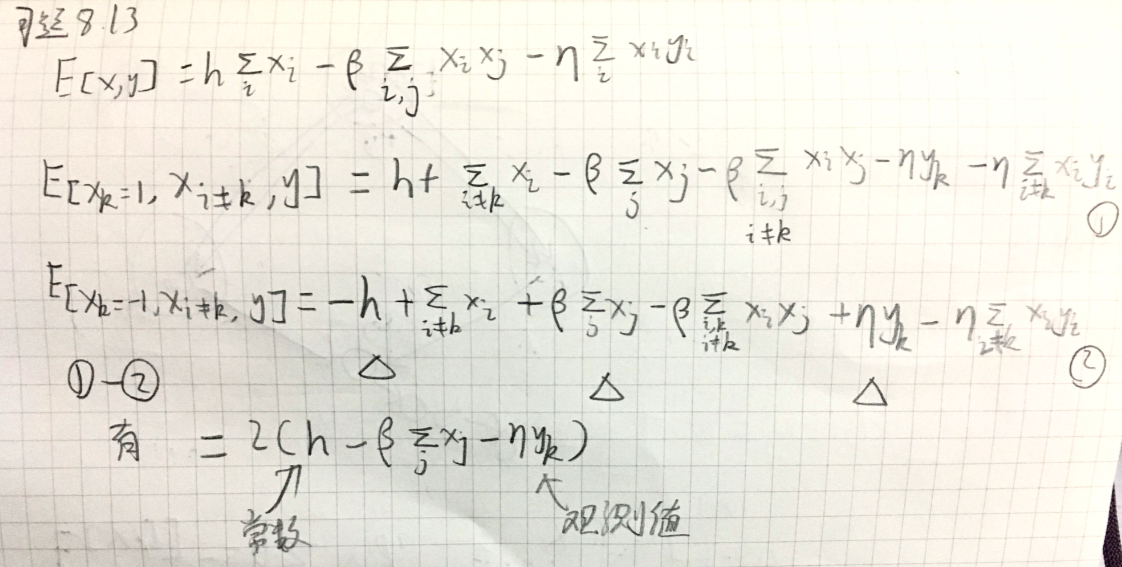 问题 8.13
E[x,y] = h Σ_i x_i − β Σ_{i,j} x_i x_j − η Σ_i x_i y_i
E[x_k=1, x_{i≠k}, y] = h + Σ_{i≠k} x_i − β Σ_j x_j − β Σ_{i,j i≠k} x_i x_j − η y_k − η Σ_{i≠k} x_i y_i ①
E[x_k=-1, x_{i≠k}, y] = −h + Σ_{i≠k} x_i + β Σ_j x_j − β Σ_{i,k i≠k} x_i x_j + η y_k − η Σ_{i≠k} x_i y_i ②
①−② △ △ △
有 = 2(h − β Σ_j x_j − η y_k)
常数 观测值